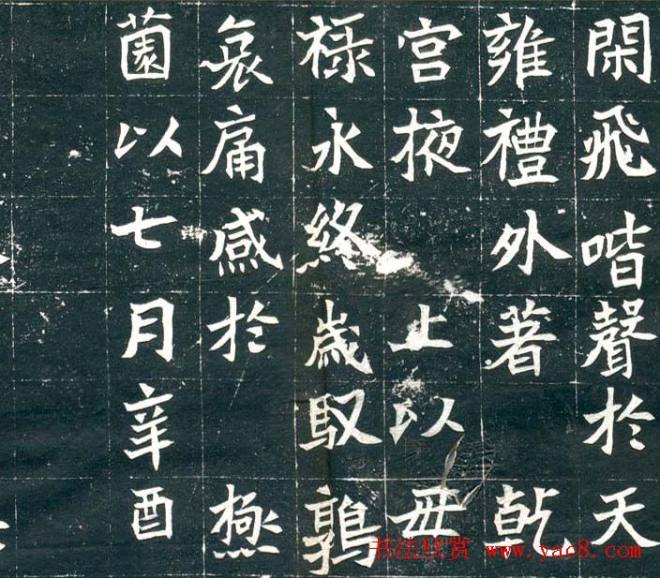 閑飛喈聲於天
雍禮外著 乾
宫掖 上以毋
禄永終歲馭鶉
哀痛感於 極
薗以七月辛酉
书法欣赏 www.yac8.com